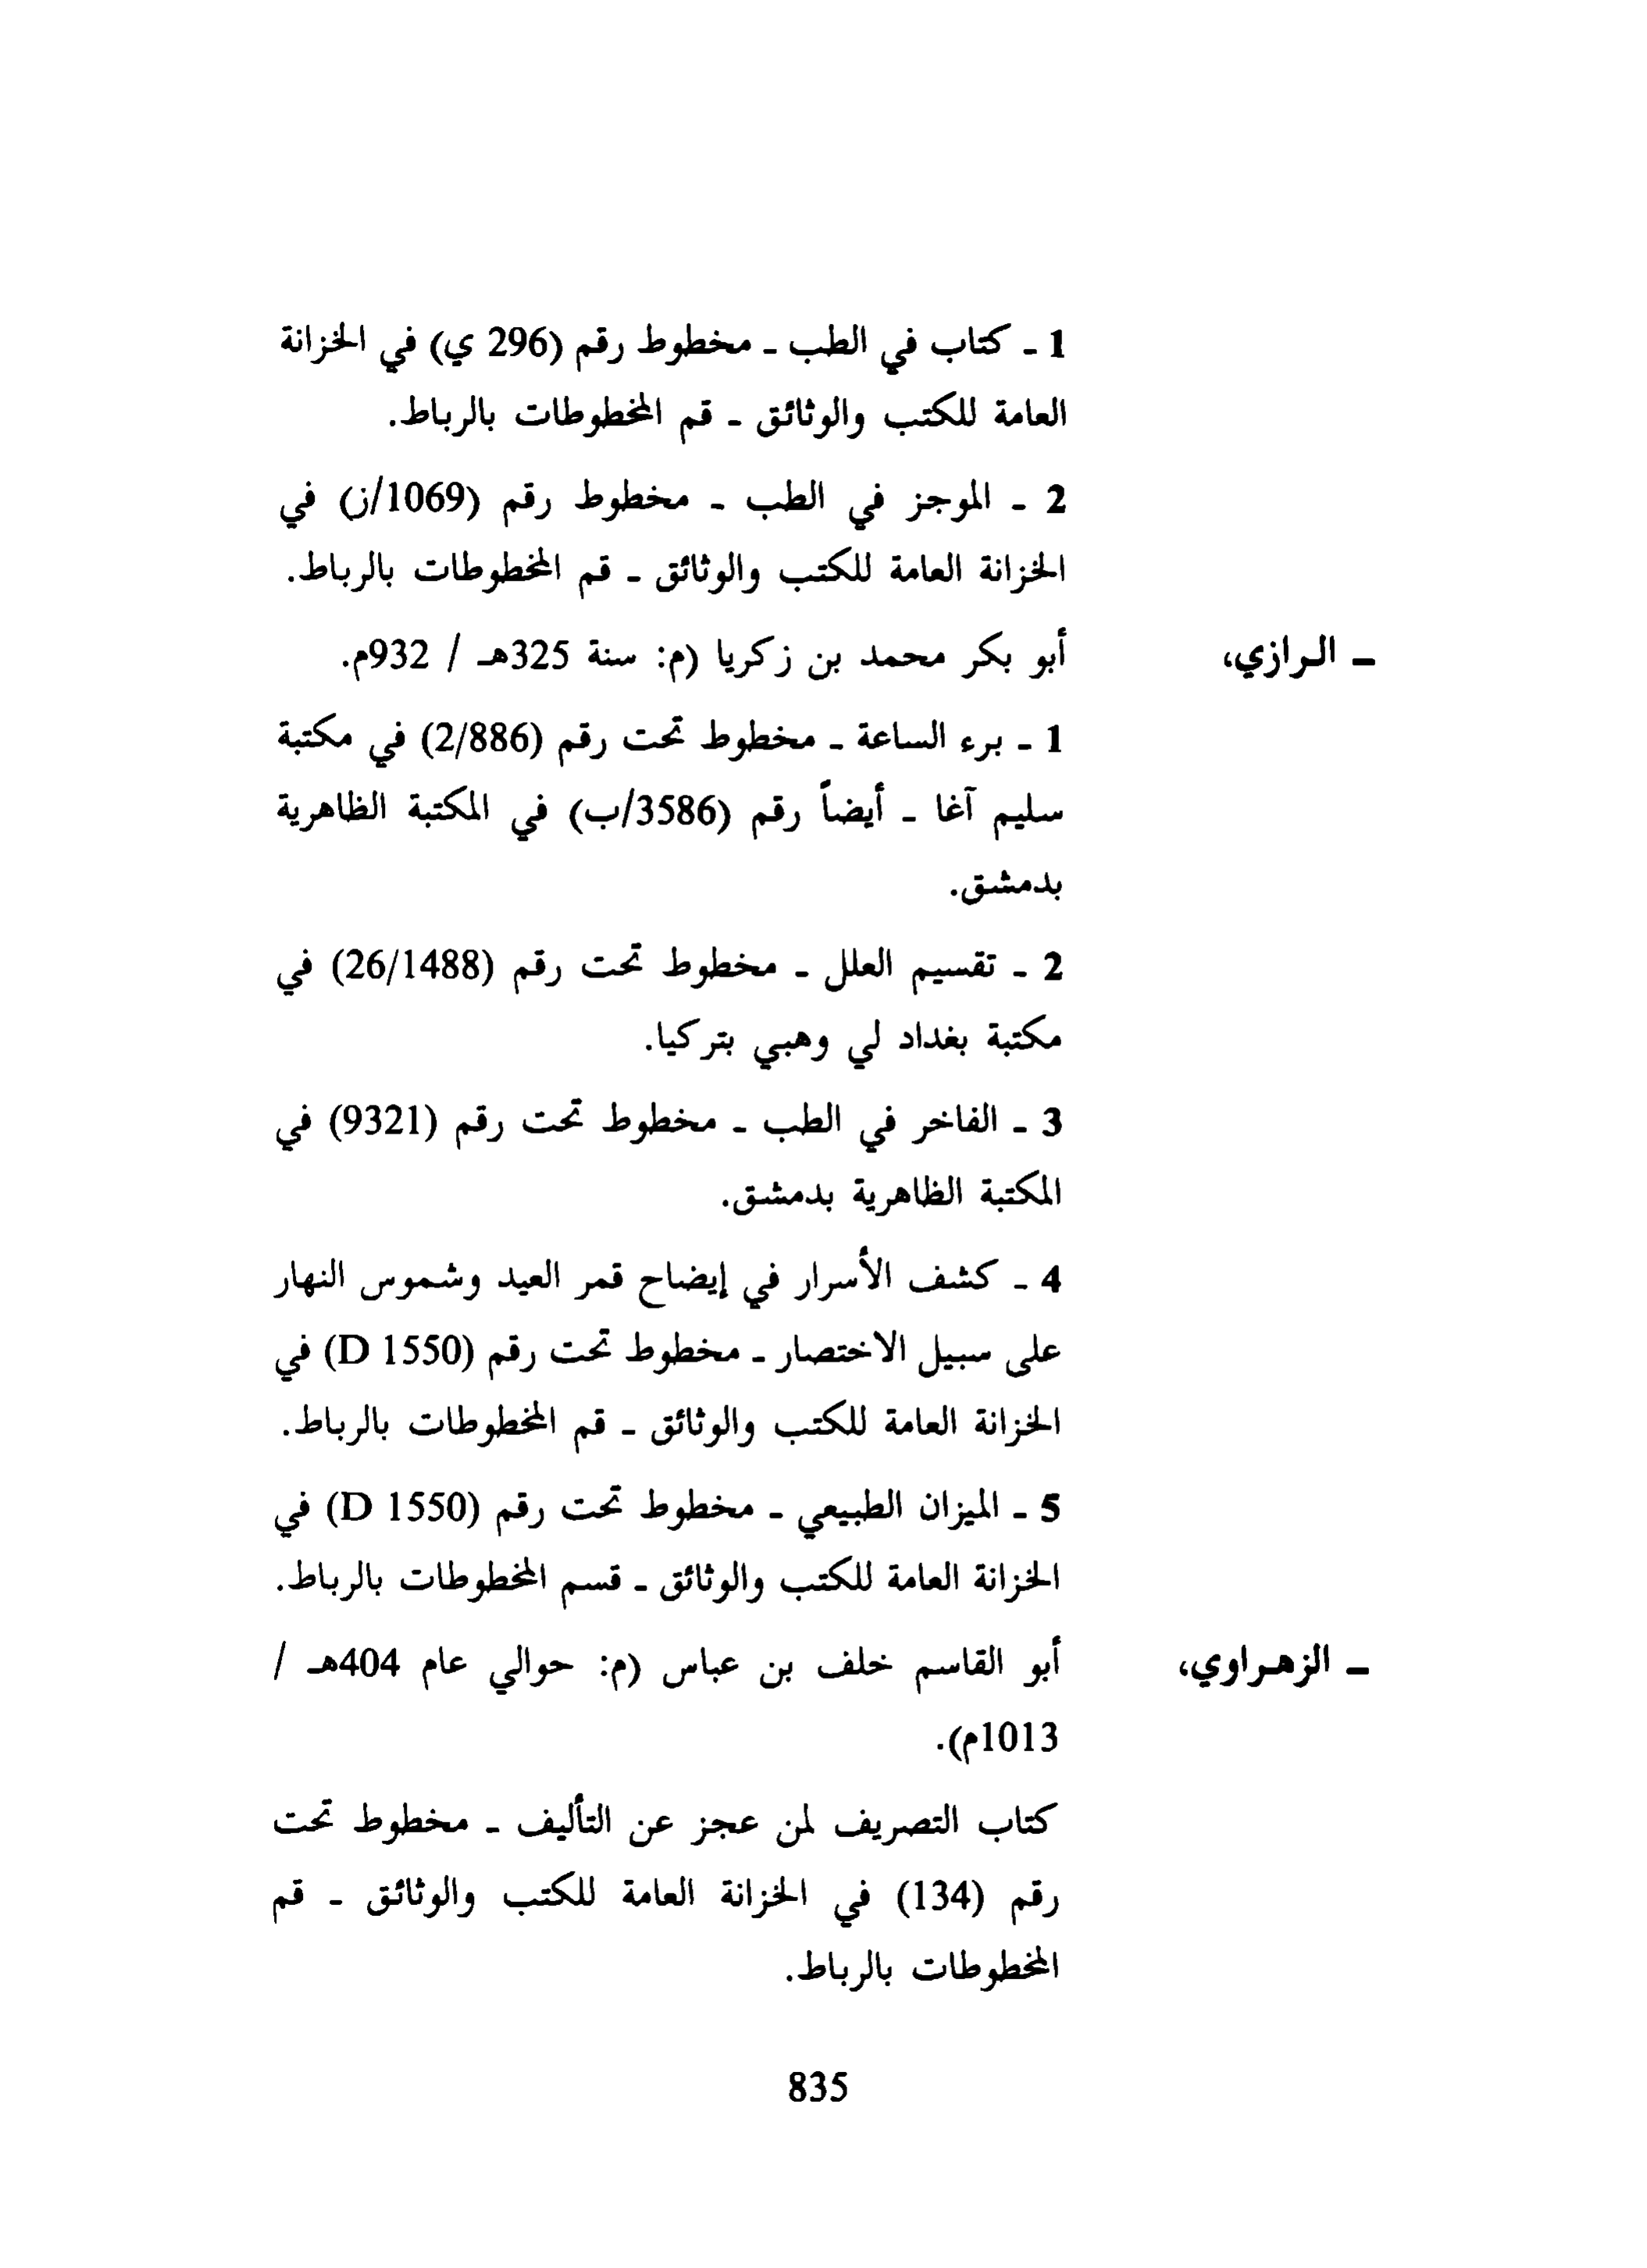 1 ـ كتاب في الطب ـ مخطوط رقم (296 ي) في الخزانة
العامة للكتب والوثائق ـ قم المخطوطات بالرباط.
2 ـ الموجز في الطب ـ مخطوط رقم (1069/ز) في
الخزانة العامة للكتب والوثائق ـ قم المخطوطات بالرباط.
ـ الرازي، أبو بكر محمد بن زكريا (م: سنة 325هـ / 932م.
1 ـ برء الساعة ـ مخطوط تحت رقم (2/886) في مكتبة
سليم آغا ـ أيضاً رقم (3586/ب) في المكتبة الظاهرية
بدمشق.
2 ـ تقسيم العلل ـ مخطوط تحت رقم (26/1488) في
مكتبة بغداد لي وهبي بتركيا.
3 ـ الفاخر في الطب ـ مخطوط تحت رقم (9321) في
المكتبة الظاهرية بدمشق.
4 ـ كشف الأسرار في إيضاح قمر العيد وشموس النهار
على سبيل الاختصار ـ مخطوط تحت رقم (D 1550) في
الخزانة العامة للكتب والوثائق ـ قم المخطوطات بالرباط.
5 ـ الميزان الطبيعي ـ مخطوط تحت رقم (D 1550) في
الخزانة العامة للكتب والوثائق ـ قسم المخطوطات بالرباط.
ـ الزهراوي، أبو القاسم خلف بن عباس (م: حوالي عام 404هـ /
1013م).
كتاب التصريف لمن عجز عن التأليف ـ مخطوط تحت
رقم (134) في الخزانة العامة للكتب والوثائق ـ قم
المخطوطات بالرباط.
835